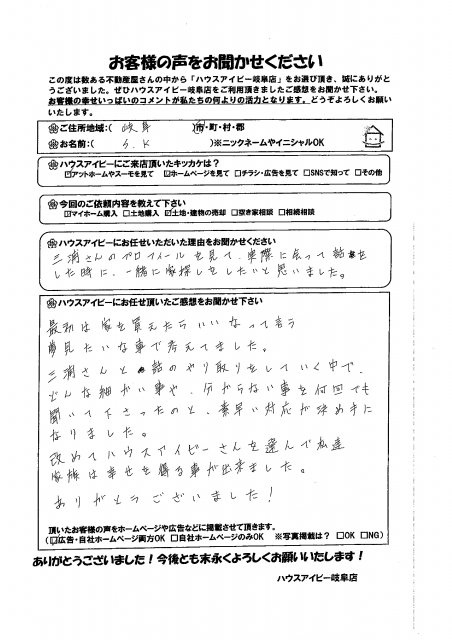 お客様の声をお聞かせください
この度は数ある不動産屋さんの中から「ハウスアイビー岐阜店」をお選び頂き、誠にありがと
うございました。ぜひハウスアイビー岐阜店をご利用頂きましたご感想をお聞かせ下さい。
お客様の幸せいっぱいのコメントが私たちの何よりの活力となります。どうぞよろしくお願い
いたします。
ご住所地域:( 岐阜 )市・町・村・郡
お名前:( S.K )※ニックネームやイニシャルOK
ハウスアイビーにご来店頂いたキッカケは?
☑アットホームやスーモを見て ☑ホームページを見て □チラシ・広告を見て □SNSで知って □その他
今回のご依頼内容を教えて下さい
☑マイホーム購入 □土地購入 ☑土地・建物の売却 □空き家相談 □相続相談
ハウスアイビーにお任せいただいた理由をお聞かせください
三浦さんのプロフィールを見て、実際に会って話を
した時に、一緒に家探しをしたいと思いました。
ハウスアイビーにお任せ頂いたご感想をお聞かせ下さい
最初は家を買えたらいいなって言う
夢見たいな事で考えてました。
三浦さんと話のやり取りをしていく中で、
どんな細かい事や、分からない事を何回でも
聞いて下さったのと、素早い対応が決め手に
なりました。
改めてハウスアイビーさんを選んで私達
家族は幸せを得る事が出来ました。
ありがとうございました!
頂いたお客様の声をホームページや広告などに掲載させて頂きます。
(☑広告・自社ホームページ両方OK □自社ホームページのみOK ※写真掲載は? □OK □NG)
ありがとうございました!今後とも末永くよろしくお願いいたします!
ハウスアイビー岐阜店